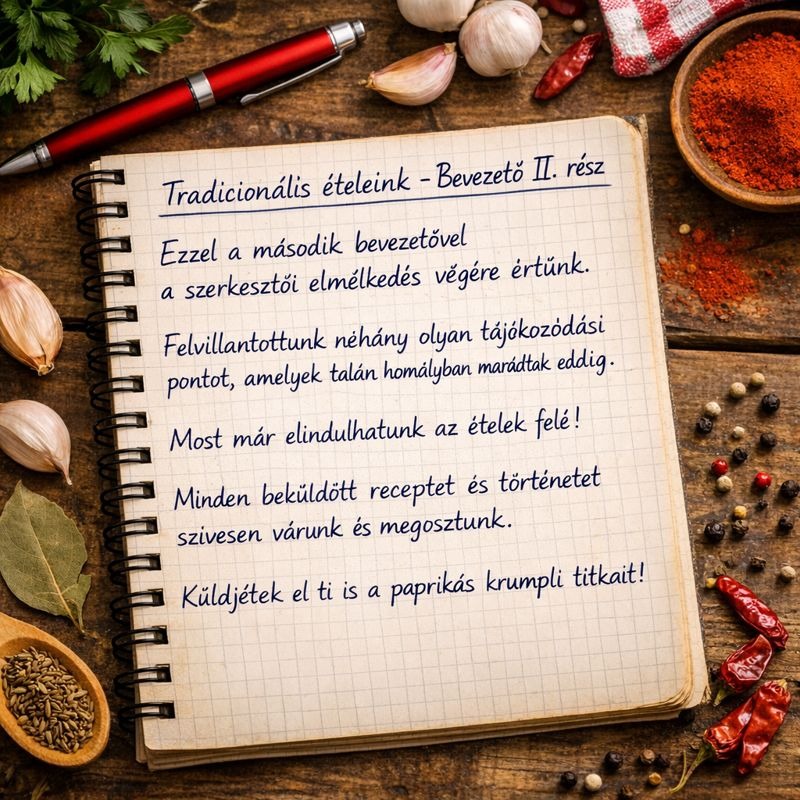 Tradicionális ételeink - Bevezető II. rész
Ezzel a második bevezetővel
a szerkesztői elmélkedés végére értünk.
Felvillantottunk néhány olyan tájókozódási
pontot, amelyek talán homályban marádtak eddig.
Most már elindulhatunk az ételek felé!
Minden beküldött receptet és történetet
szivesen várunk és megosztunk.
Küldjétek el ti is a paprikás krumpli titkait!